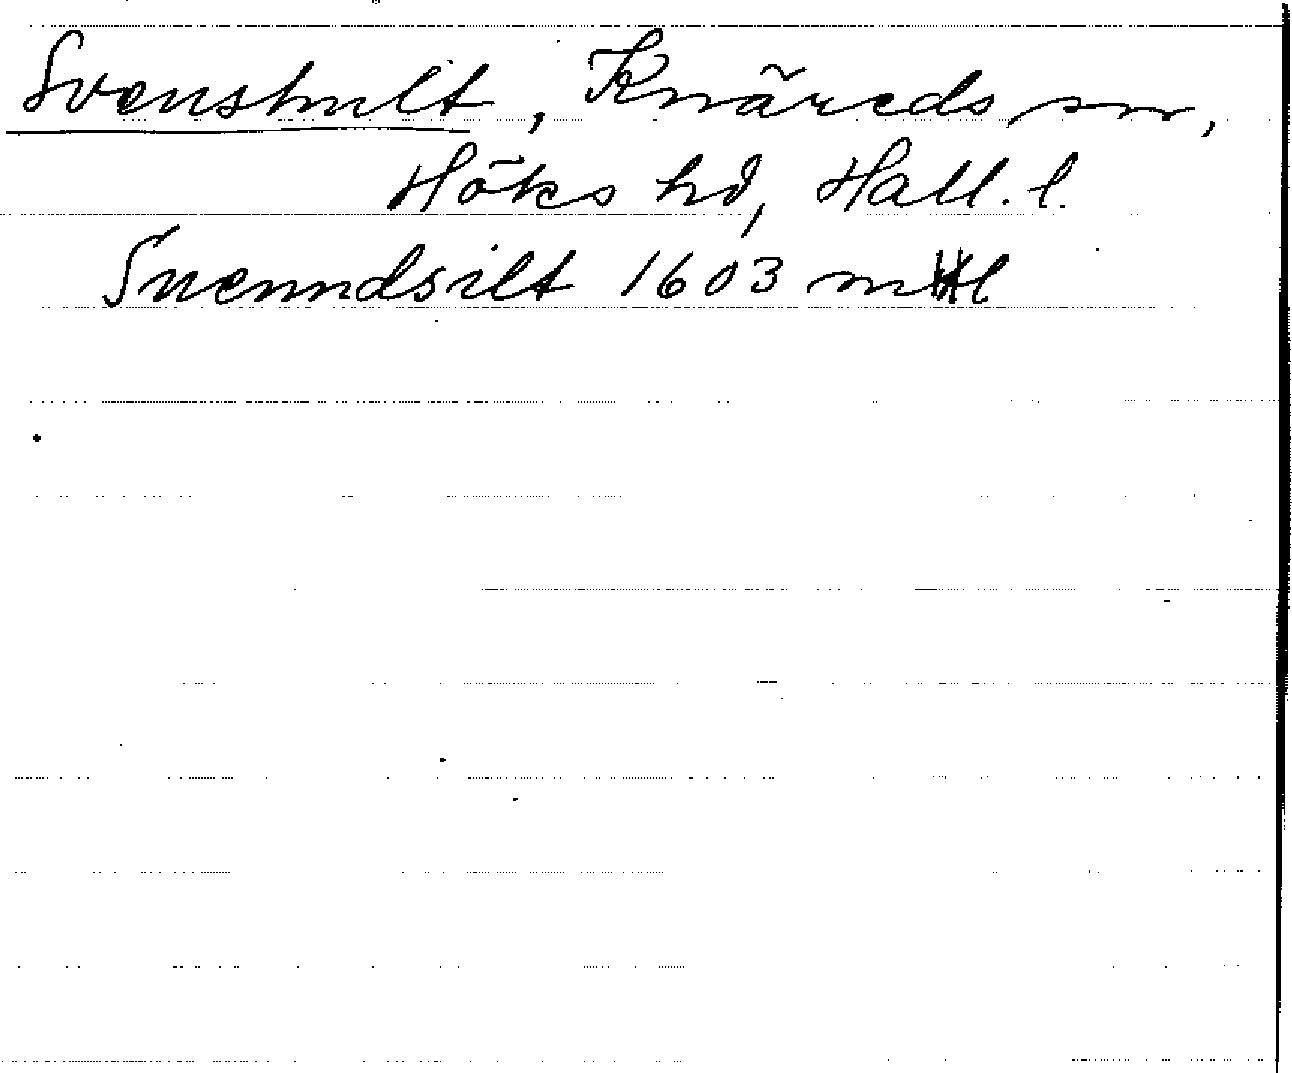 Svenshult, Knäreds sn,
Höks hd, Hall. l.
Suenndsilt 1603